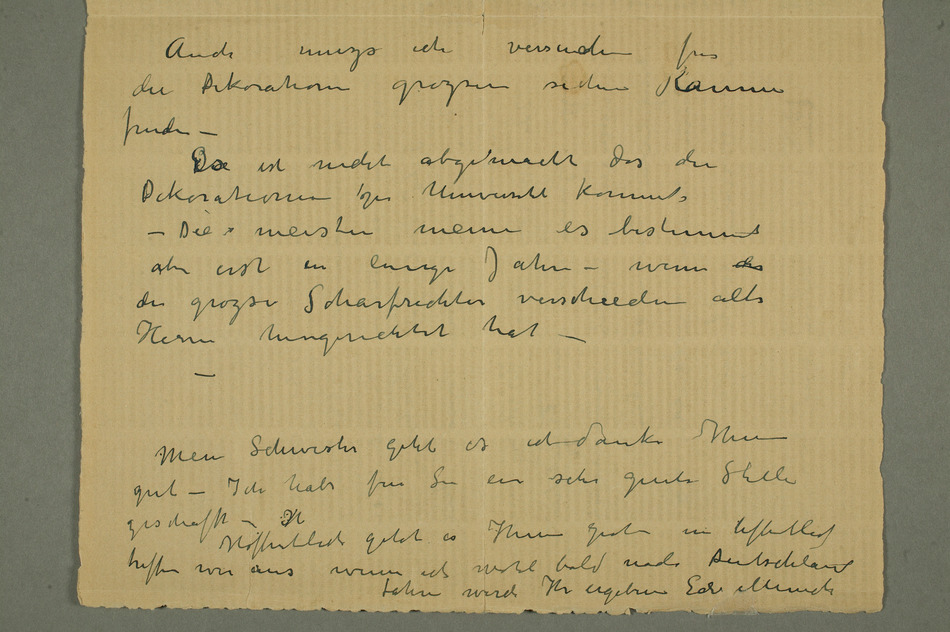 Auch muzs ich versuchen für
die Dekorationen grozsen Räume
finden —
Das ist nicht abgemacht das die
Dekorationen Universitet kommt
— Die meisten meinen es bestimmt
aber erst in einige Jahre — wenn der
die grozse Scharfrichter verschiedene alte
Herrn hingerichtet hat —
—
Mein Schwester geht es ich danke Ihnen
gut — Ich habe für Sie ein sehr gute Stelle
geschafft —
Hoffentlich geht es Ihnen gut
treffen wir uns wenn ich wohl bald nach Deutschland
fahren werde Ihr ergebene Edv Munch